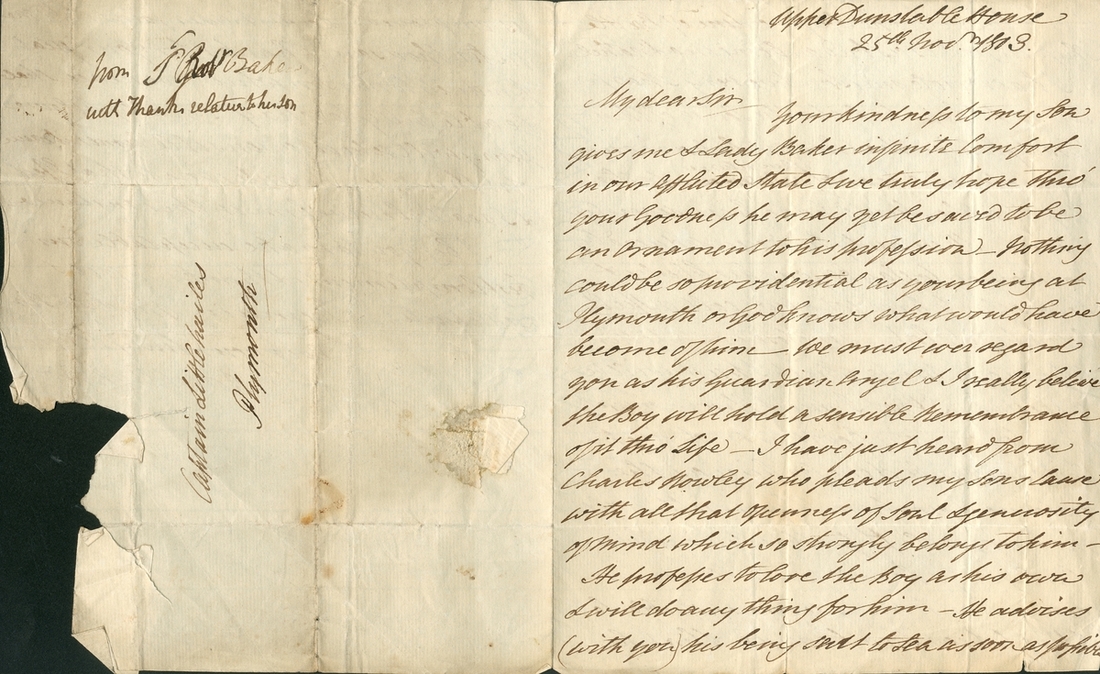 from Sr Robt Baker
with Thanks relative to his son
Captain Littlehailes
Plymouth
Upper Dunstable House
25th Novr 1803.
My dear Sir
Your kindness to my Son
gives me & Lady Baker infinite Comfort
in our afflicted State & we truly hope thro'
your Goodness he may yet be saved to be
an Ornament to his profession – Nothing
could be so providential as your being at
Plymouth or God knows what would have
become of him – We must ever regard
you as his Guardian Angel & I really believe
the Boy will hold a sensible Remembrance
of it thro Life – I have just heard from
Charles Rowley who pleads my Sons Cause
with all that Openness of Soul & generosity
of Mind which so strongly belongs to him –
He professes to love the Boy as his own
& will do any thing for him – He advises
(with you) his being sent to Sea as soon as possible